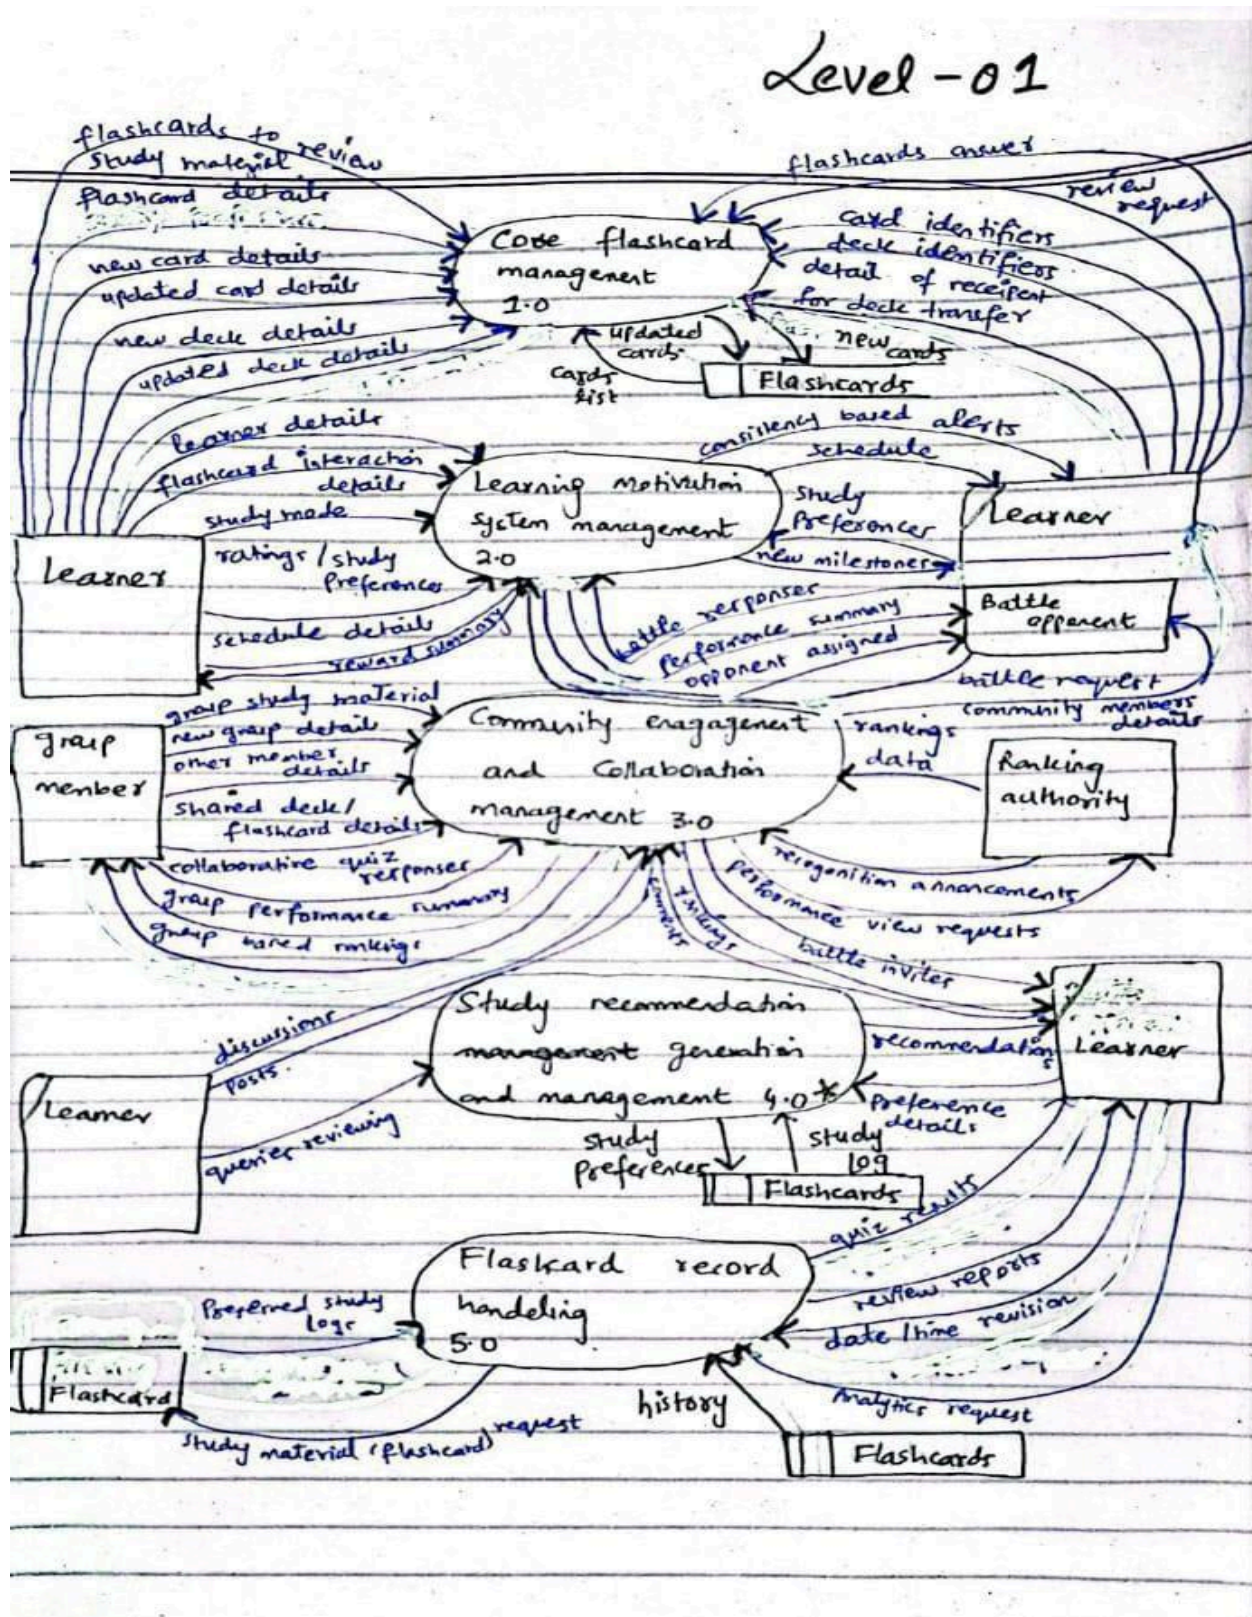 Level-01
flashcards to review
study material
flashcard details
new card details
updated card details
new deck details
updated deck details
flashcards answer
review request
card identifiers
deck identifiers
detail of receipent
for deck transfer
Core flashcard
management
1.0
updated
cards
new
cards
cards
list
Flashcards
learner details
flashcard interaction
details
study mode
ratings/study
Preferences
schedule details
reward summary
Learner
Learning motivation
system management
2.0
consistency based alerts
schedule
study
Preferences
new milestones
Learner
battle responses
performance summary
opponent assigned
Battle
opponent
battle request
community members
details
group study material
new group details
other member
details
shared deck/
flashcard details
collaborative quiz
responses
group performance summary
group based rankings
group
member
Community enagagement
and Collaboration
management 3.0
rankings
data
Ranking
authority
recogonition annoncements
performance view requests
battle invites
rankings
comments
discussions
posts.
queries reviewing
Learner
Study recommendation
management generation
and management 4.0*
recommendations
preference
details
Learner
study
preferences
study
log
Flashcards
quiz results
review reports
date/time revision
Analytics request
Flashcard record
handeling
5.0
Preferred study
logs
Flashcard
study material (flashcard) request
history
Flashcards